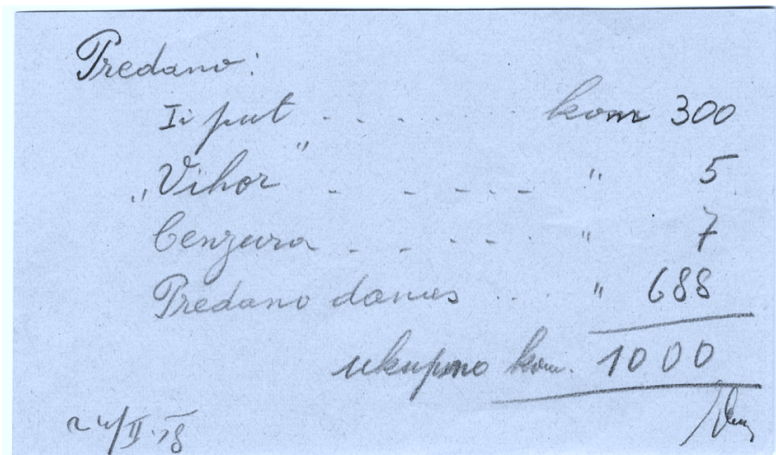 Predano:
Ii put . . . . . . kom 300
„Vihor" - - - - - - " 5
Cenzura - - - - - - " 7
Predano danas . . . . " 688
ukupno kom. 1000